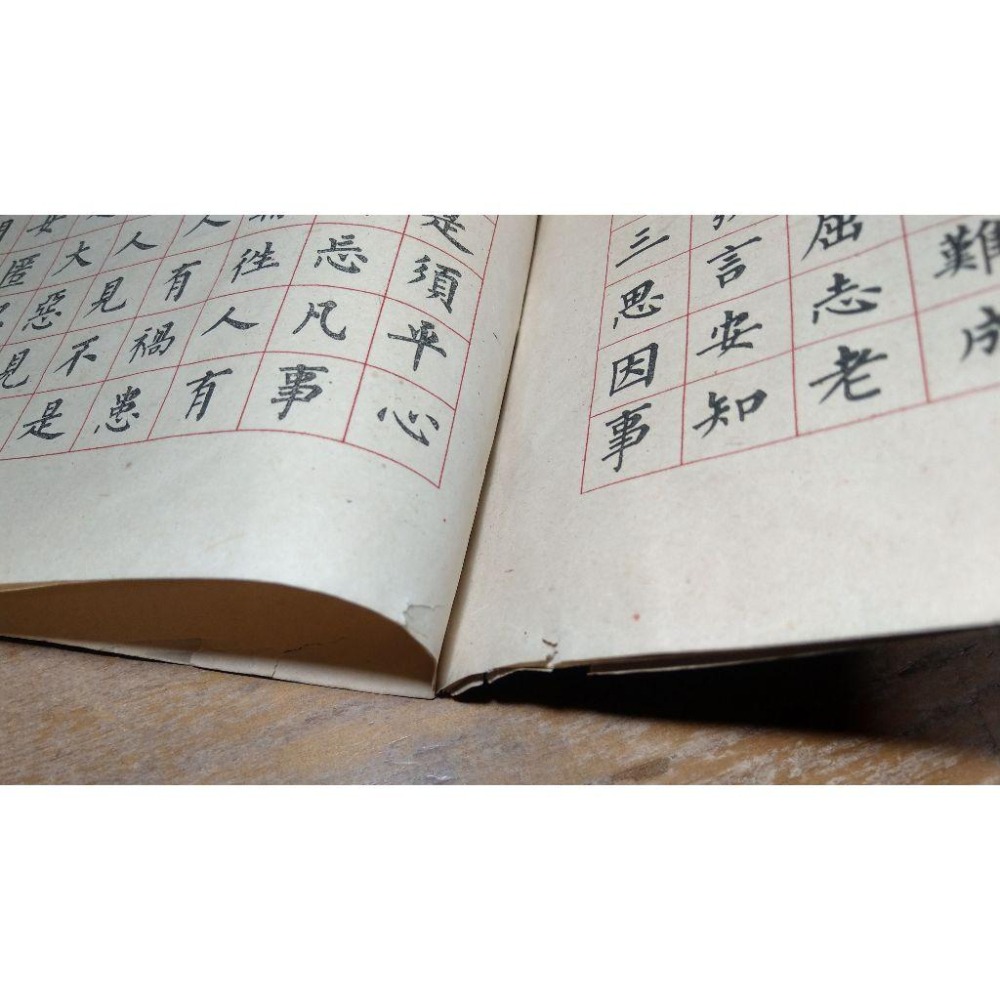 難成
屈志老
言安知
三思因事
是須平心
忘凡事
往人有
人有禍患
人見不是
大惡見
匿